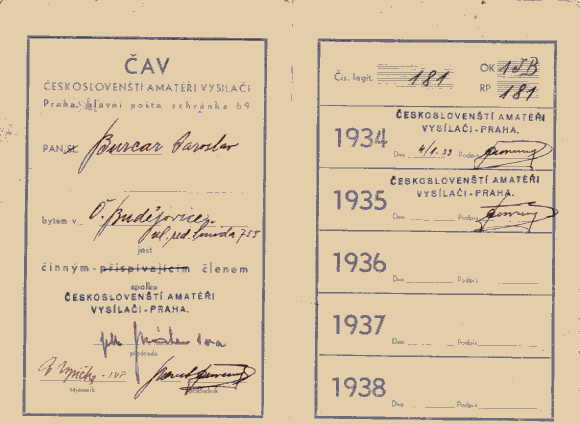 ČAV
ČESKOSLOVENŠTÍ AMATÉŘI VYSILAČI
Praha, hlavní pošta schránka 69
PAN SL. Burcar Jaroslav
bytem v Č. Budějovice,
jest
činným - přispívajícím členem
spolku
ČESKOSLOVENŠTÍ AMATÉŘI
VYSÍLAČI-PRAHA.
předseda
jednatel
Čís. legit. 181
OK 1JB
RP 181
ČESKOSLOVENŠTÍ AMATÉŘI
VYSÍLAČI-PRAHA.
1934
Dne Podpis
ČESKOSLOVENŠTÍ AMATÉŘI
VYSÍLAČI-PRAHA.
1935
Dne Podpis
1936
Dne Podpis
1937
Dne Podpis
1938
Dne Podpis